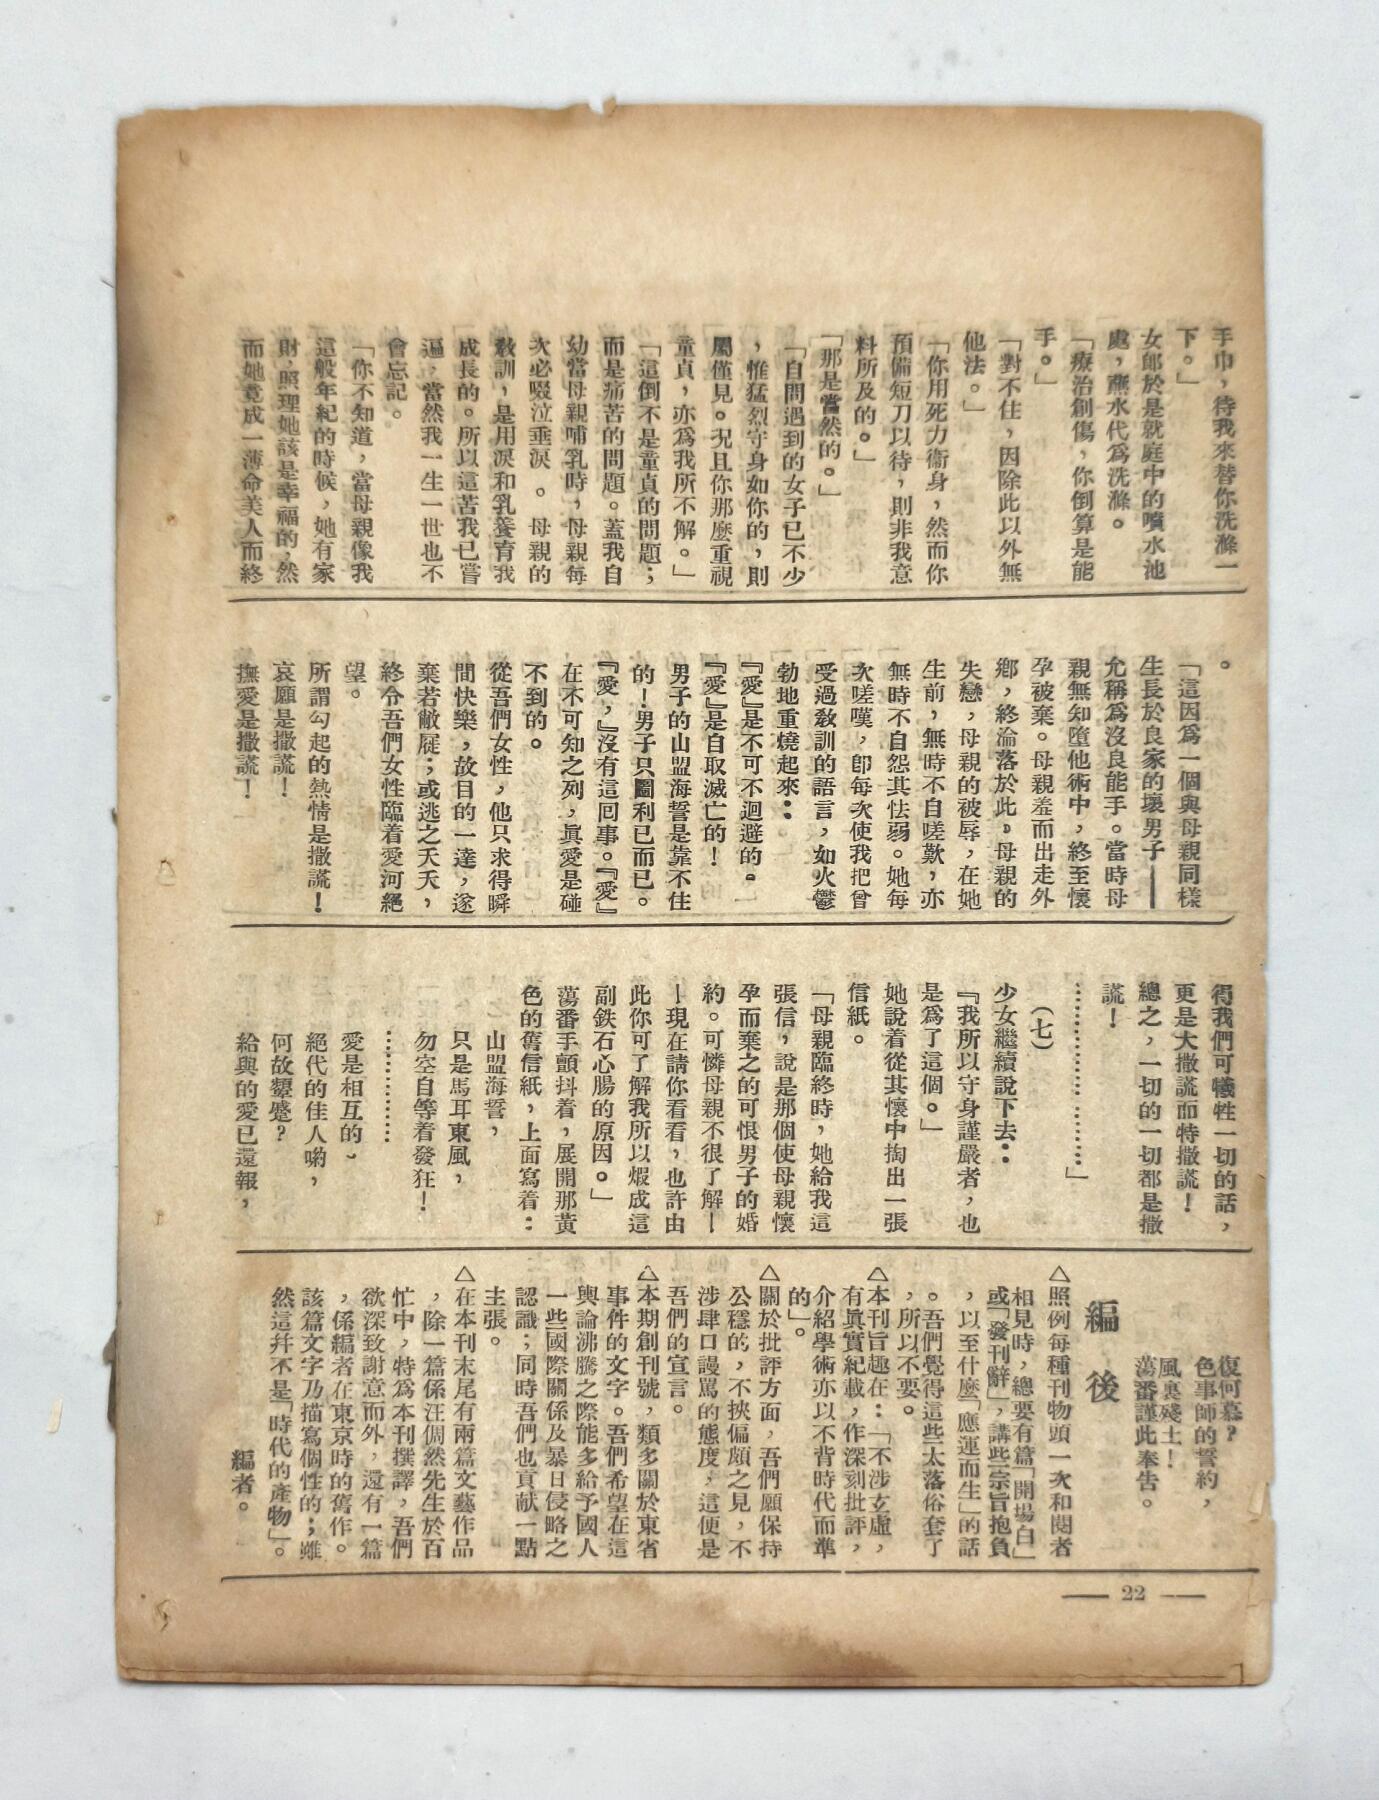 手巾，待我來替你洗滌一
下。」
女郎於是就庭中的噴水池
處，蘸水代爲洗滌。
「療治創傷，你倒算是能
手。」
「對不住，因除此以外無
他法。」
「你用死力衞身，然而你
預備短刀以待，則非我意
料所及的。」
「那是當然的。」
「自問遇到的女子已不少
，惟猛烈守身如你的，則
屬僅見。況且你那麼重視
童貞，亦爲我所不解。」
「這倒不是童貞的問題；
而是痛苦的問題。蓋我自
幼當母親哺乳時，母親每
次必啜泣垂淚　。母親的
敎訓，是用淚和乳養育我
成長的。所以這苦我已嘗
遍，當然我一生一世也不
會忘記。
「你不知道，當母親像我
這般年紀的時候，她有家
財，照理她該是幸福的，然
而她竟成一薄命美人而終
。
「這因爲一個與母親同樣
生長於良家的壞男子——
允稱爲沒良能手。當時母
親無知墮他術中，終至懷
孕被棄。母親羞而出走外
鄉，終淪落於此。母親的
失戀，母親的被辱，在她
生前，無時不自嗟歎，亦
無時不自怨其怯弱。她每
次嗟嘆，卽每次使我把曾
受過敎訓的語言，如火鬱
勃地重燒起來：
『愛』是不可不迴避的。
『愛』是自取滅亡的！
男子的山盟海誓是靠不住
的！男子只圖利已而已。
『愛，』沒有這囘事。『愛』
在不可知之列，眞愛是碰
不到的。
從吾們女性，他只求得瞬
間快樂，故目的一達，遂
棄若敝屣；或逃之夭夭，
終令吾們女性臨着愛河絕
望。
所謂勾起的熱情是撒謊！
哀願是撒謊！
撫愛是撒謊！
得我們可犧牲一切的話，
更是大撒謊而特撒謊！
總之，一切的一切都是撒
謊！
…………………」
（七）
少女繼續說下去：
『我所以守身謹嚴者，也
是爲了這個。」
她說着從其懷中掏出一張
信紙。
「母親臨終時，她給我這
張信，說是那個使母親懷
孕而棄之的可恨男子的婚
約。可憐母親不很了解—
—現在請你看看，也許由
此你可了解我所以煆成這
副鉄石心腸的原因。」
蕩番手顫抖着，展開那黃
色的舊信紙，上面寫着：
山盟海誓，
只是馬耳東風，
勿空自等着發狂！
……………
愛是相互的、
絕代的佳人喲，
何故顰蹙？
給與的愛已還報，
復何慕？
色事師的誓約，
風裏殘土！
蕩番謹此奉告。
編後
△照例每種刊物頭一次和閱者
相見時，總要有篇「開場白」
或「發刊辭」，講些宗旨抱負
，以至什麼「應運而生」的話
。吾們覺得這些太落俗套了
，所以不要。
△本刊旨趣在：「不涉玄虛，
有眞實紀載，作深刻批評，
介紹學術亦以不背時代而準
的」。
△關於批評方面，吾們願保持
公穩的，不挾偏頗之見，不
涉肆口謾罵的態度，這便是
吾們的宣言。
△本期創刊號，類多關於東省
事件的文字。吾們希望在這
輿論沸騰之際能多給予國人
一些國際關係及暴日侵略之
認識；同時吾們也貢献一點
主張。
△在本刊末尾有兩篇文藝作品
，除一篇係汪倜然先生於百
忙中，特爲本刊撰譯，吾們
欲深致謝意而外，還有一篇
，係編者在東京時的舊作。
該篇文字乃描寫個性的；雖
然這幷不是「時代的產物」。
編者。
— 22 —